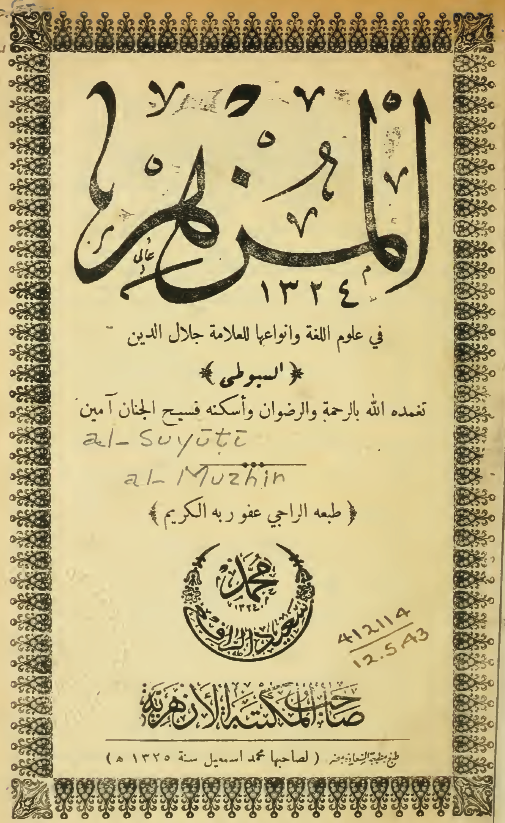 المزهر
١٣٢٤
في علوم اللغة وانواعها للعلامة جلال الدين
﴿ السيوطى ﴾
تغمده الله بالرحمة والرضوان وأسكنه فسيح الجنان آمين
al-Suyūṭī
al-Muzhir
﴿ طبعه الراجي عفو ربه الكريم ﴾
محمد
١٣٢٤
سعيد الرافعي
صاحب المكتبة الأزهرية
412114
12.5.43
( لصاحبها محمد اسمعيل سنة ١٣٢٥ ه )